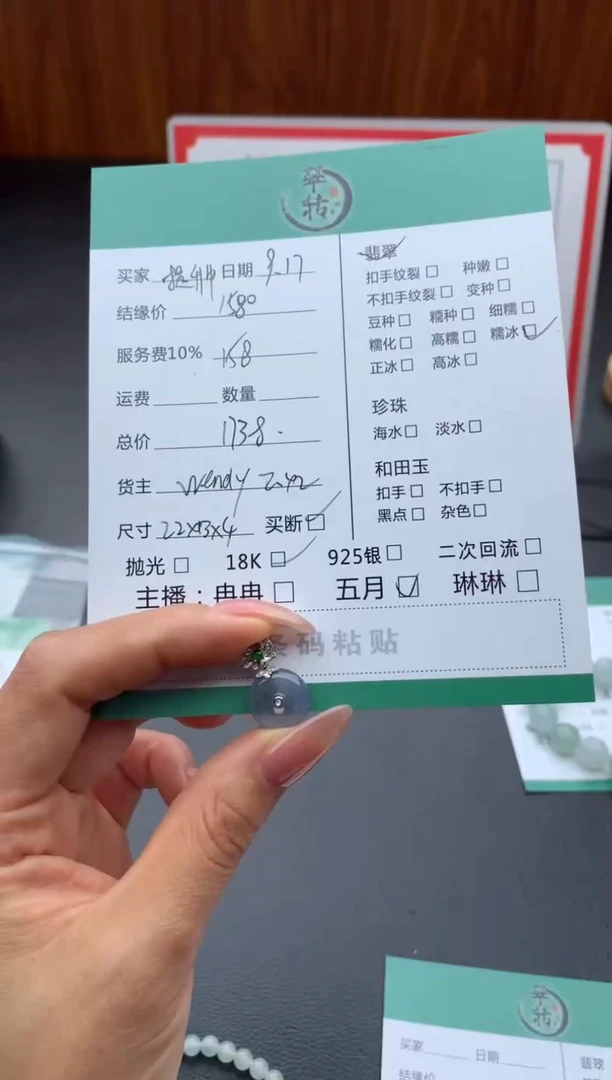 翠转
买家 日期 9.17
结缘价 1580
服务费10% 158
运费 数量
总价 1738.
货主 Wendy
尺寸 22x13x4 买断
翡翠
扣手纹裂 种嫩
不扣手纹裂 变种
豆种 糯种 细糯
糯化 高糯 糯冰
正冰 高冰
珍珠
海水 淡水
和田玉
扣手 不扣手
黑点 杂色
抛光 18K 925银 二次回流
主播：冉冉 五月 琳琳
条码粘贴
买家 日期
翡翠
结缘价